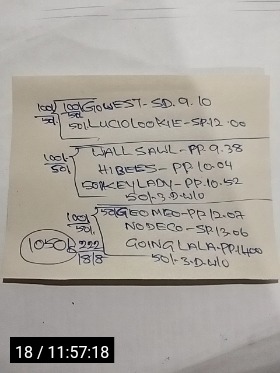 100/- 100/- GOWEST - SD. 9.10
50/- 50/- LUCIOLOOKIE - SP.12.00
100/- WALL SAWL - PP. 9.38
50/- HIBEES - PP. 10.04
50/- KEYLADY - PP. 10.52
50/- 3.D.W/O
100/- 50/- GEOMEO - PP 12.07
50/- NODECO - SP.13.06
1050/- 222 GOING LALA - PP.1400
18/8 50/- 3.D.W/O
18 / 11:57:18